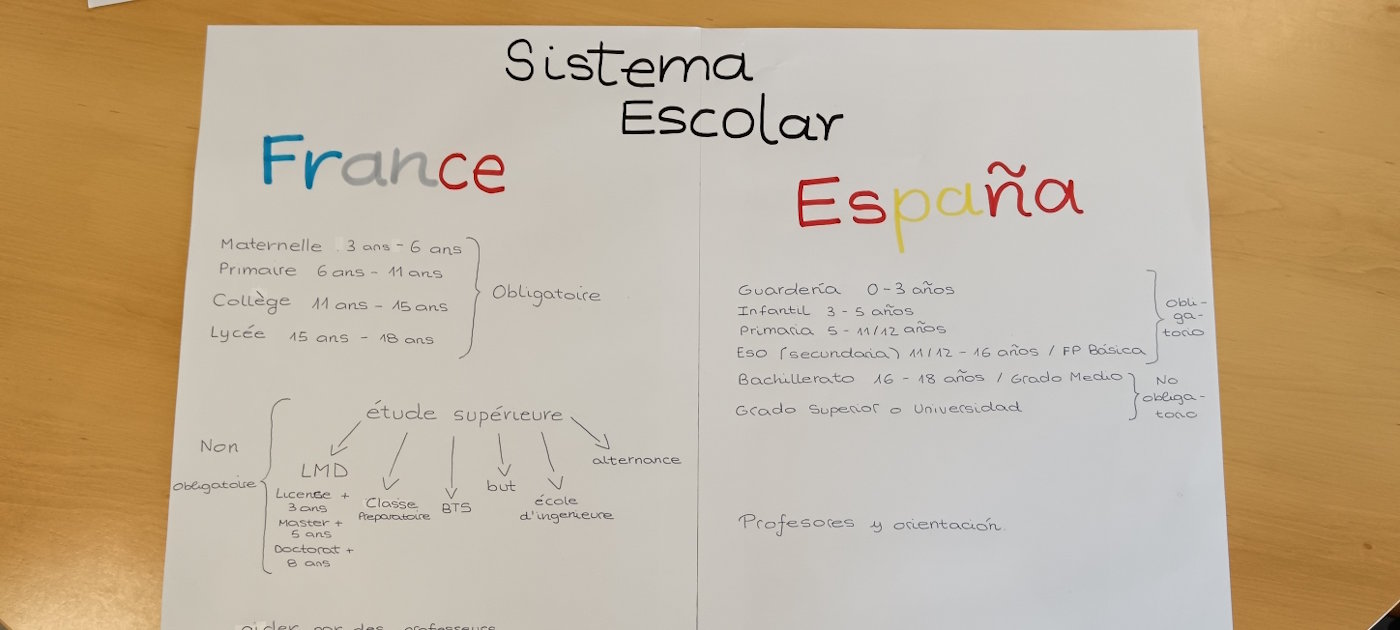 Sistema
Escolar
France
Maternelle 3 ans - 6 ans
Primaire 6 ans - 11 ans
Collège 11 ans - 15 ans
Lycée 15 ans - 18 ans
Obligatoire
Non
obligatoire
étude supérieure
LMD
License +
3 ans
Master +
5 ans
Doctorat +
8 ans
Classe
Preparatoire
BTS
but
école
d'ingenieure
alternance
aider par des professeurs
España
Guardería 0-3 años
Infantil 3 - 5 años
Primaria 5 - 11/12 años
Eso (secundaria) 11/12 - 16 años / FP Básica
Obli-
ga-
torio
Bachillerato 16 - 18 años / Grado Medio
Grado Superior o Universidad
No
obliga-
torio
Profesores y orientación